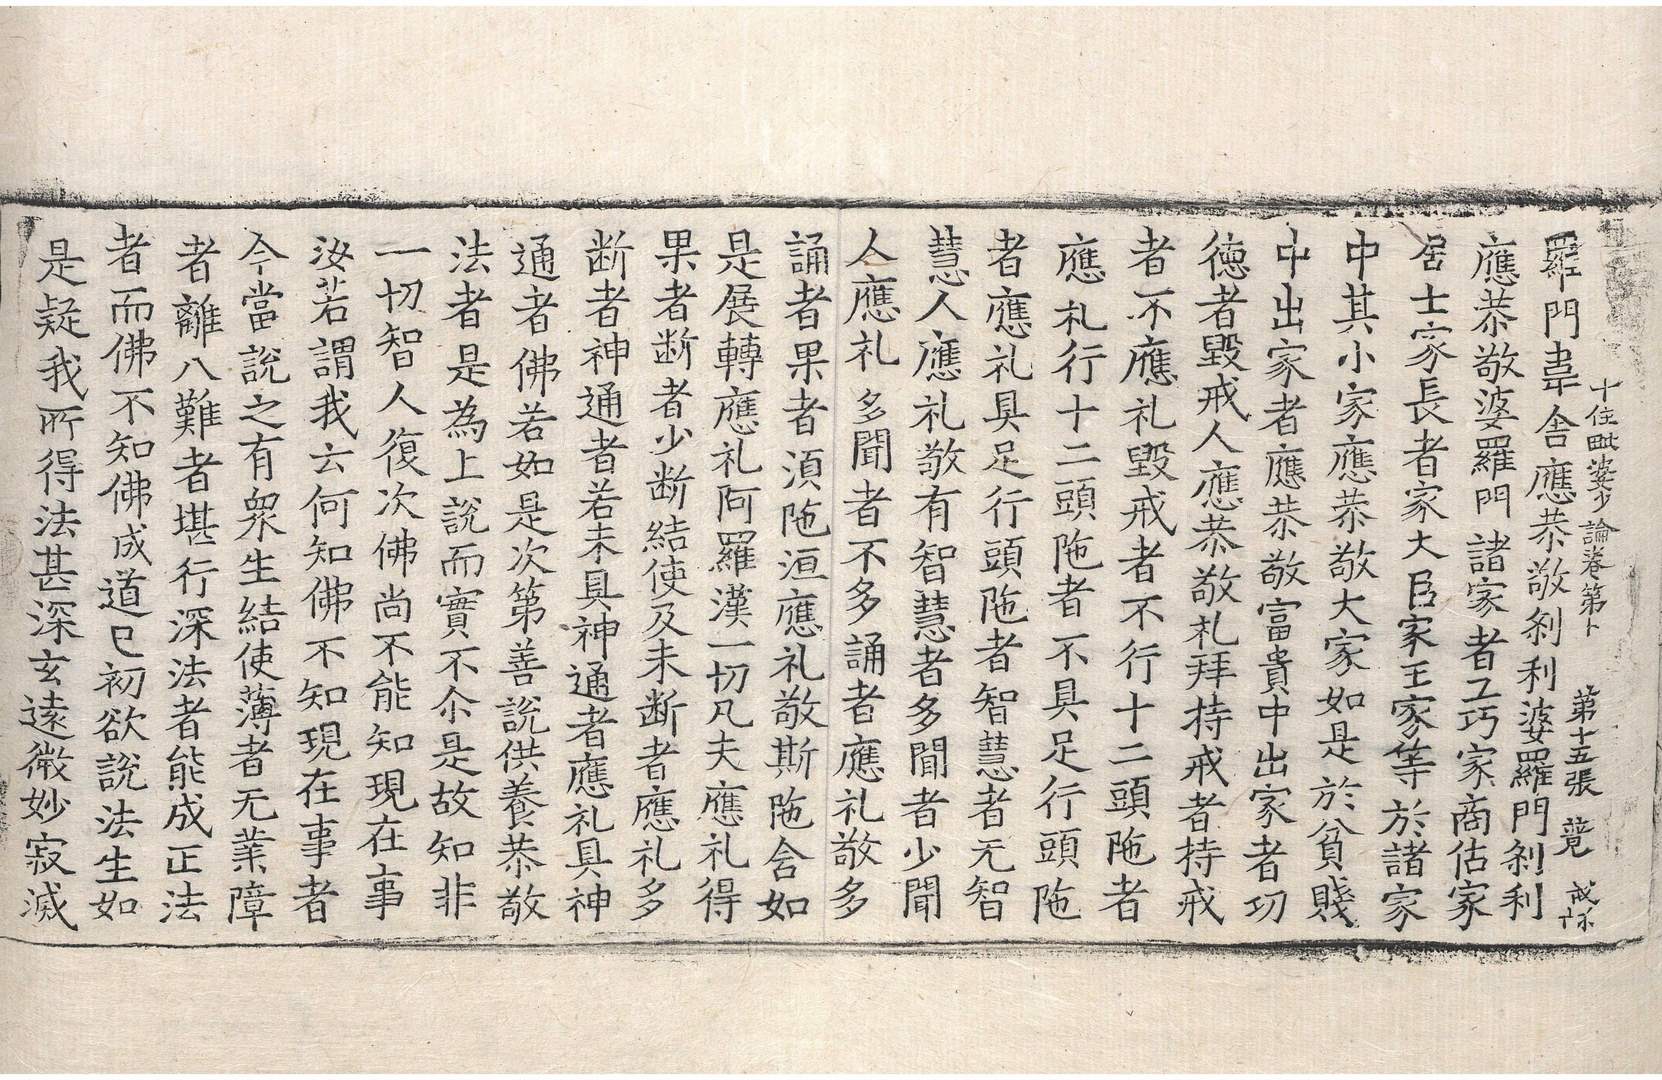 十住毗婆沙論卷第十 第十五張 竟
羅門韋舍應恭敬刹利婆羅門刹利
應恭敬婆羅門諸家者工巧家商估家
居士家長者家大臣家王家等於諸家
中其小家應恭敬大家如是於貧賤
中出家者應恭敬富貴中出家者功
德者毀戒人應恭敬礼拜持戒者持戒
者不應礼毀戒者不行十二頭陁者
應礼行十二頭陁者不具足行頭陁
者應礼具足行頭陁者智慧者无智
慧人應礼敬有智慧者多聞者少聞
人應礼多聞者不多誦者應礼敬多
誦者果者湏陁洹應礼敬斯陁含如
是展轉應礼阿羅漢一切凡夫應礼得
果者断者少断結使及未断者應礼多
断者神通者若未具神通者應礼具神
通者佛若如是次第善說供養恭敬
法者是為上說而實不尒是故知非
一切智人復次佛尚不能知現在事
汝若謂我云何知佛不知現在事者
今當說之有衆生結使薄者无業障
者離八難者堪行深法者能成正法
者而佛不知佛成道已初欲說法生如
是疑我所得法甚深玄遠微妙寂滅